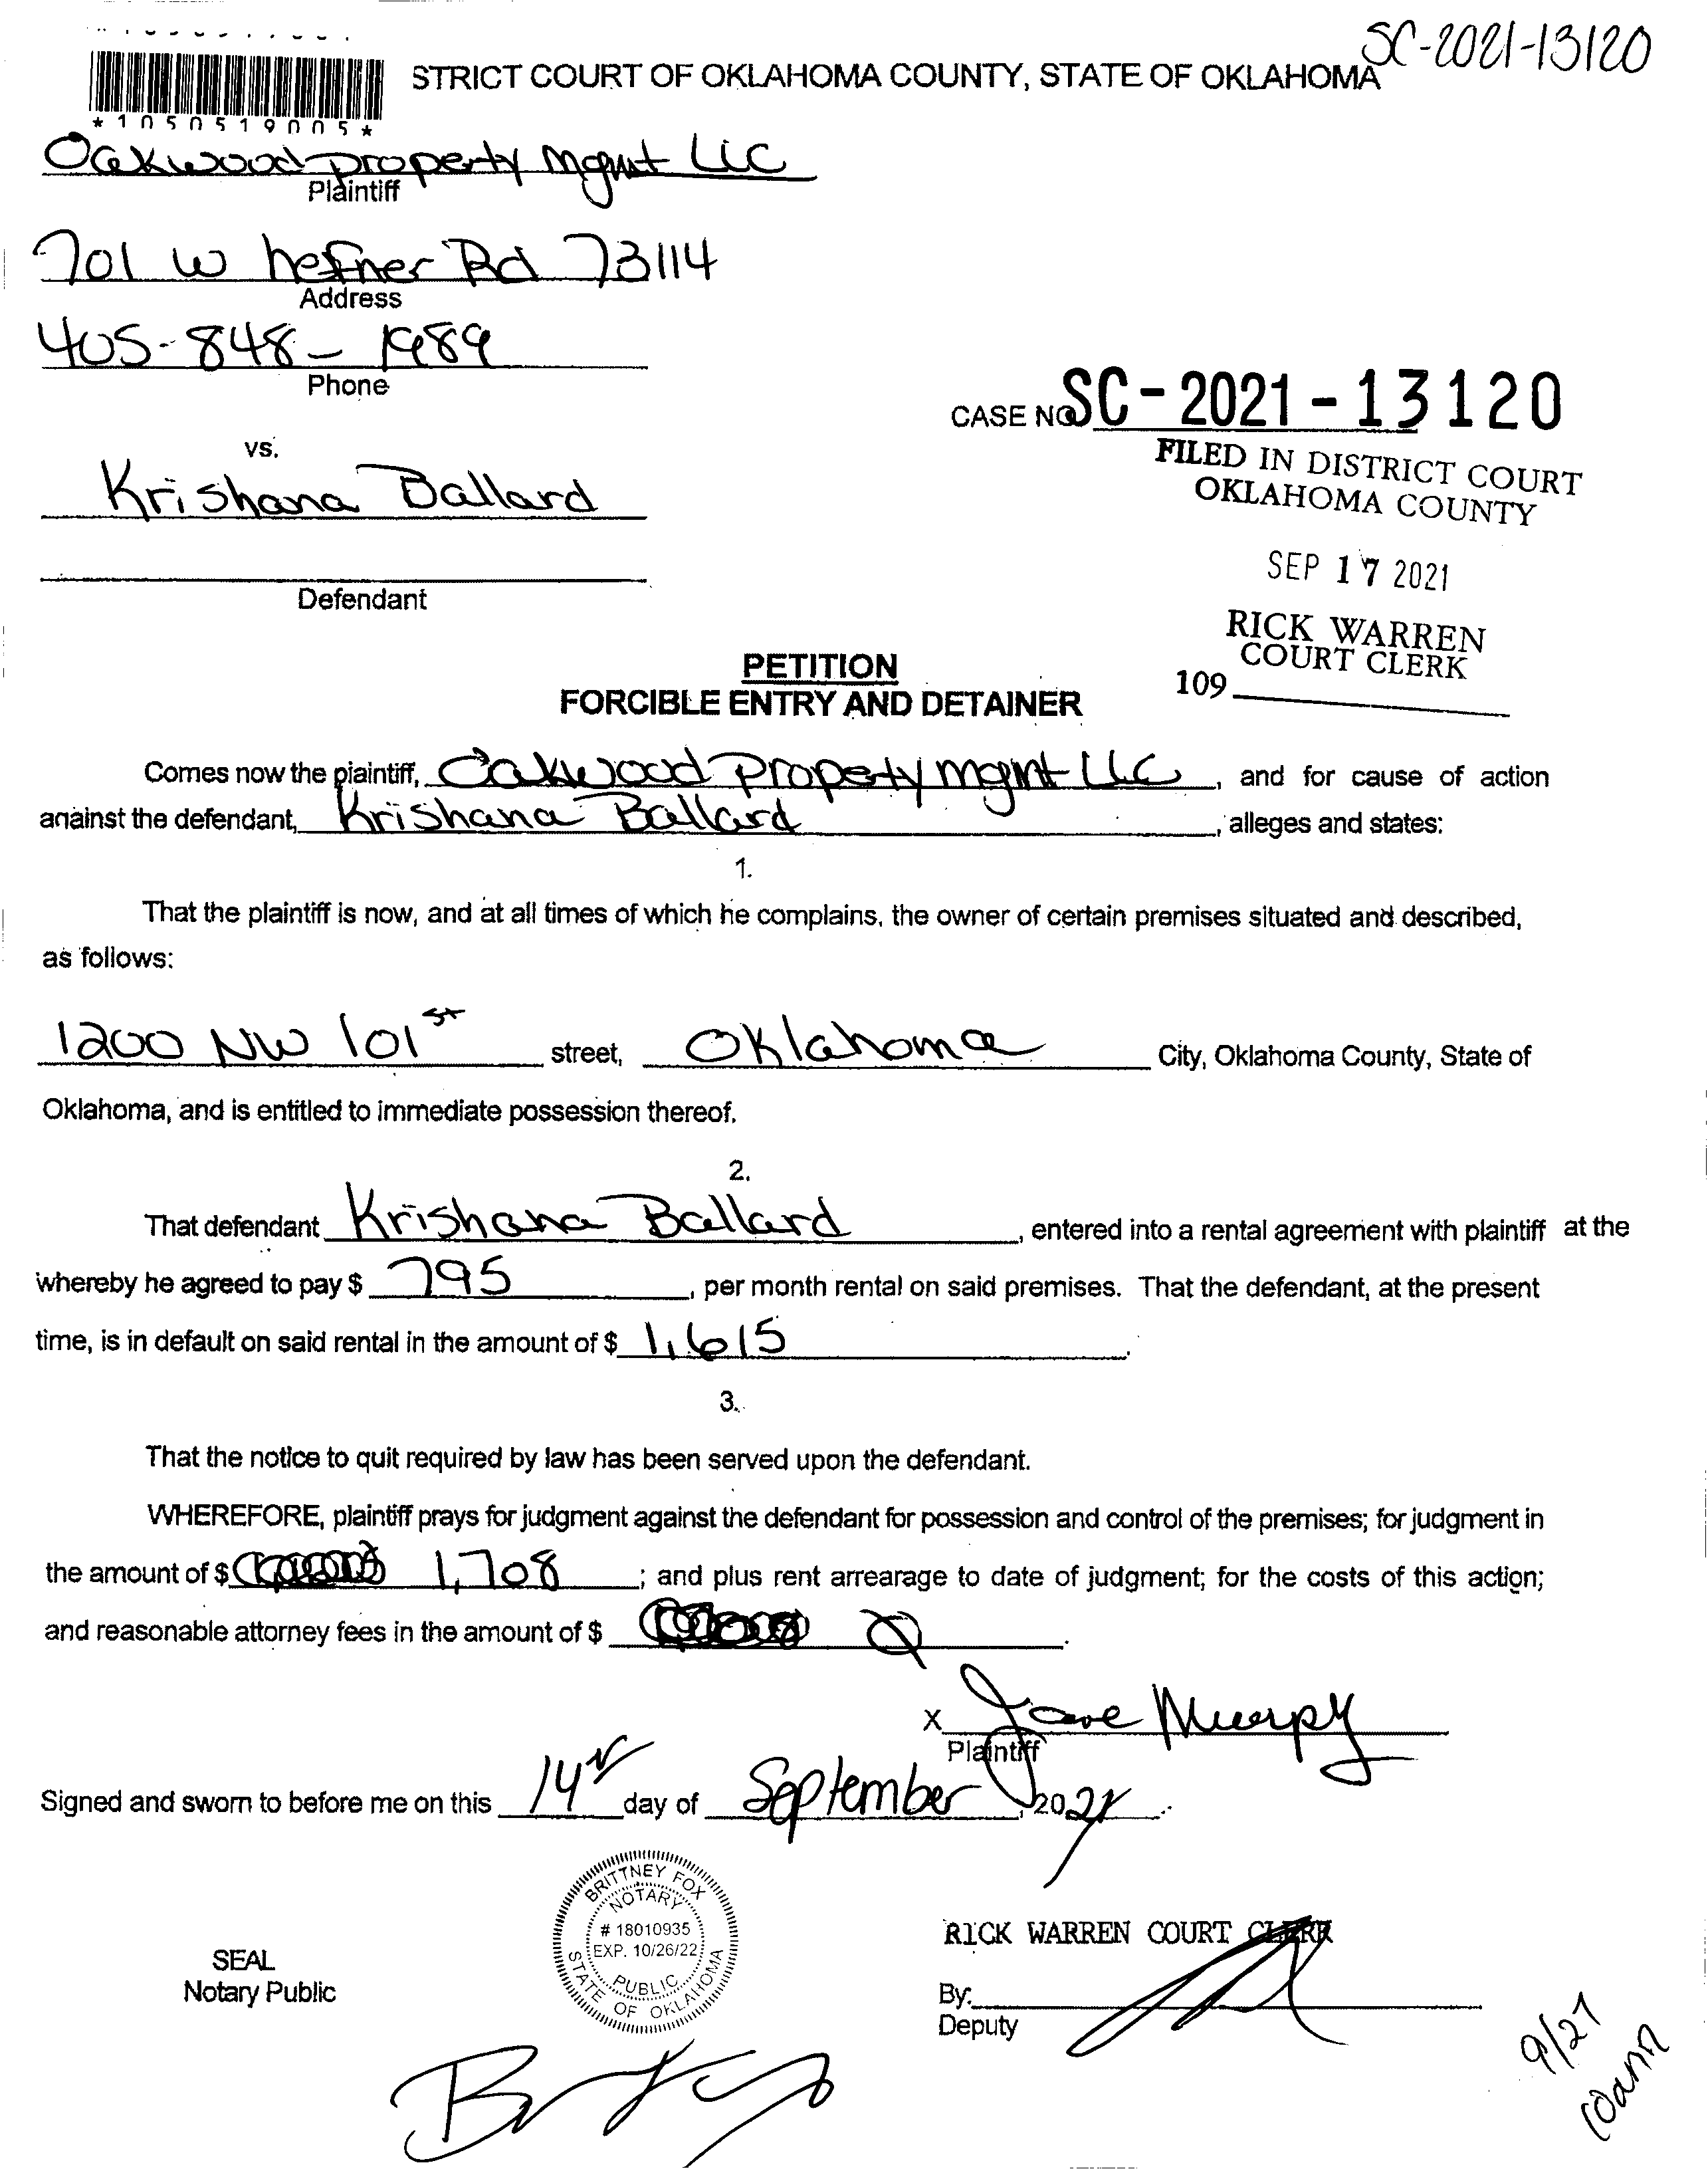 SC-2021-13120
STRICT COURT OF OKLAHOMA COUNTY, STATE OF OKLAHOMA
*1050519005*
Oakwood property Mgmt LLC
Plaintiff
701 W hefner Rd 73114
Address
405-848-1989
Phone
CASE NO SC-2021-13120
FILED IN DISTRICT COURT
OKLAHOMA COUNTY
vs.
Krishana Ballard
SEP 17 2021
Defendant
RICK WARREN
COURT CLERK
109
PETITION
FORCIBLE ENTRY AND DETAINER
Comes now the plaintiff, Oakwood Property mgmt LLC, and for cause of action
against the defendant, Krishana Ballard, alleges and states:
1.
That the plaintiff is now, and at all times of which he complains, the owner of certain premises situated and described,
as follows:
1200 NW 101st street, Oklahoma City, Oklahoma County, State of
Oklahoma, and is entitled to immediate possession thereof.
2.
That defendant Krishana Ballard, entered into a rental agreement with plaintiff at the
whereby he agreed to pay $ 795, per month rental on said premises. That the defendant, at the present
time, is in default on said rental in the amount of $ 1,615.
3.
That the notice to quit required by law has been served upon the defendant.
WHEREFORE, plaintiff prays for judgment against the defendant for possession and control of the premises; for judgment in
the amount of $ 1,708; and plus rent arrearage to date of judgment; for the costs of this action;
and reasonable attorney fees in the amount of $ 0.
x Jave Murpy
Plaintiff
Signed and sworn to before me on this 14 day of September, 2021.
BRITTNEY FOX
NOTARY
# 18010935
EXP. 10/26/22
PUBLIC
STATE OF OKLAHOMA
SEAL
Notary Public
RICK WARREN COURT CLERK
By:
Deputy
9/27